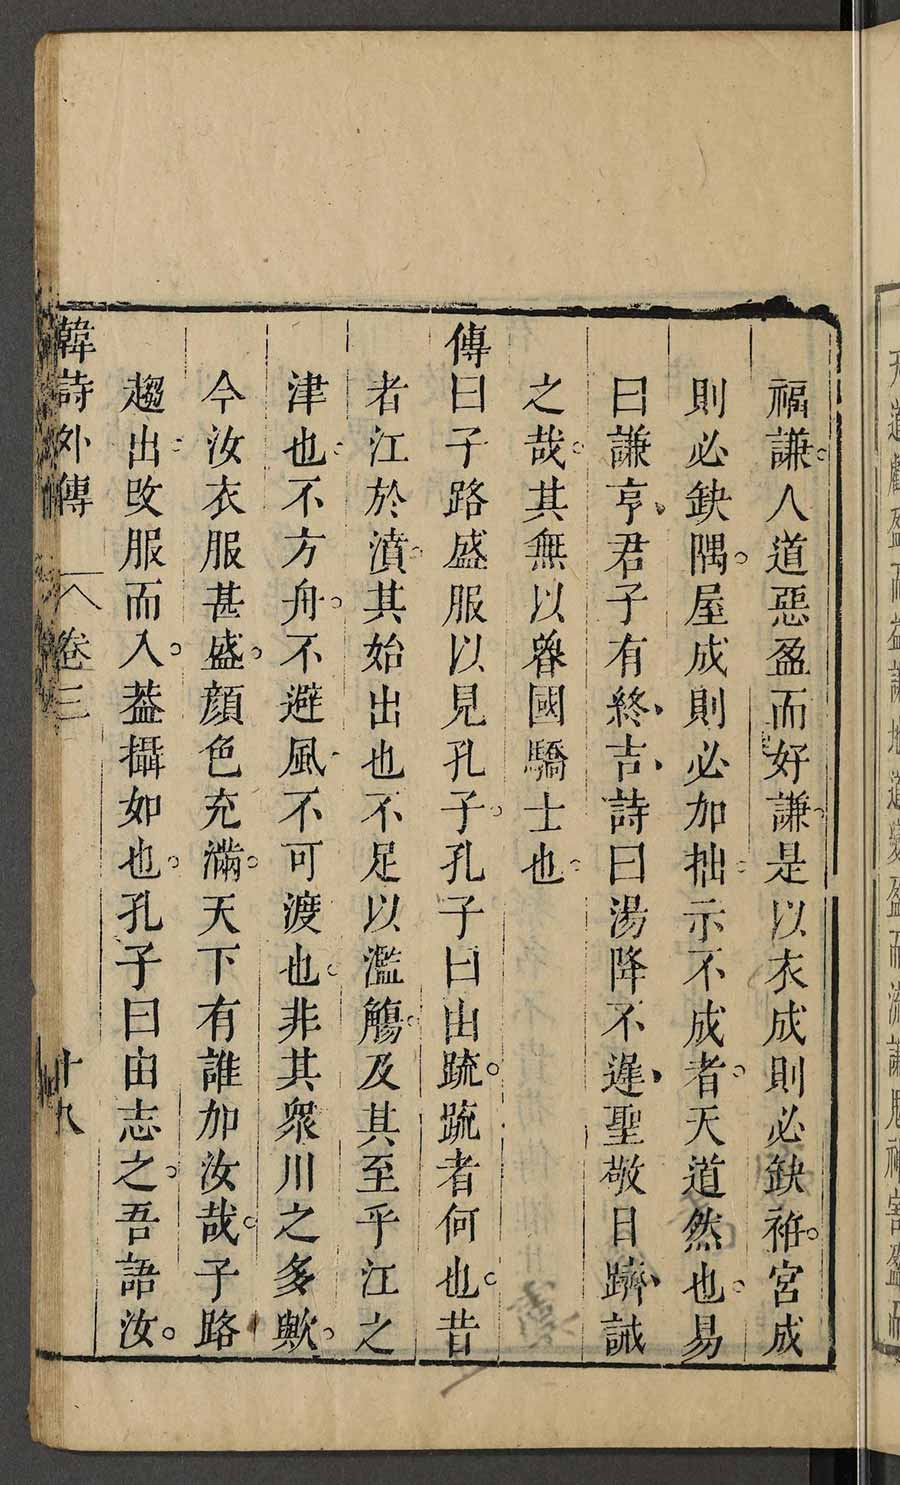 天道虧盈而益謙地道變盈而流謙鬼神害盈而
福謙。人道惡盈而好謙。是以衣成則必缺袵。宮成
則必缺隅。屋成則必加拙。示不成者。天道然也。易
曰謙亨、君子有終、吉、詩曰湯降不遲、聖敬日躋、誡
之哉。其無以魯國驕士也。
傳曰子路盛服以見孔子。孔子曰由疏。疏者何也。昔
者江於濆。其始出也不足以濫觴。及其至乎江之
津也。不方舟。不避風不可渡也。非其眾川之多歟。
今汝衣服甚盛。顏色充滿。天下有誰加汝哉。子路
趨出。攺服而入。葢攝如也。孔子曰由志之。吾語汝。
韓詩外傳 卷三 十九